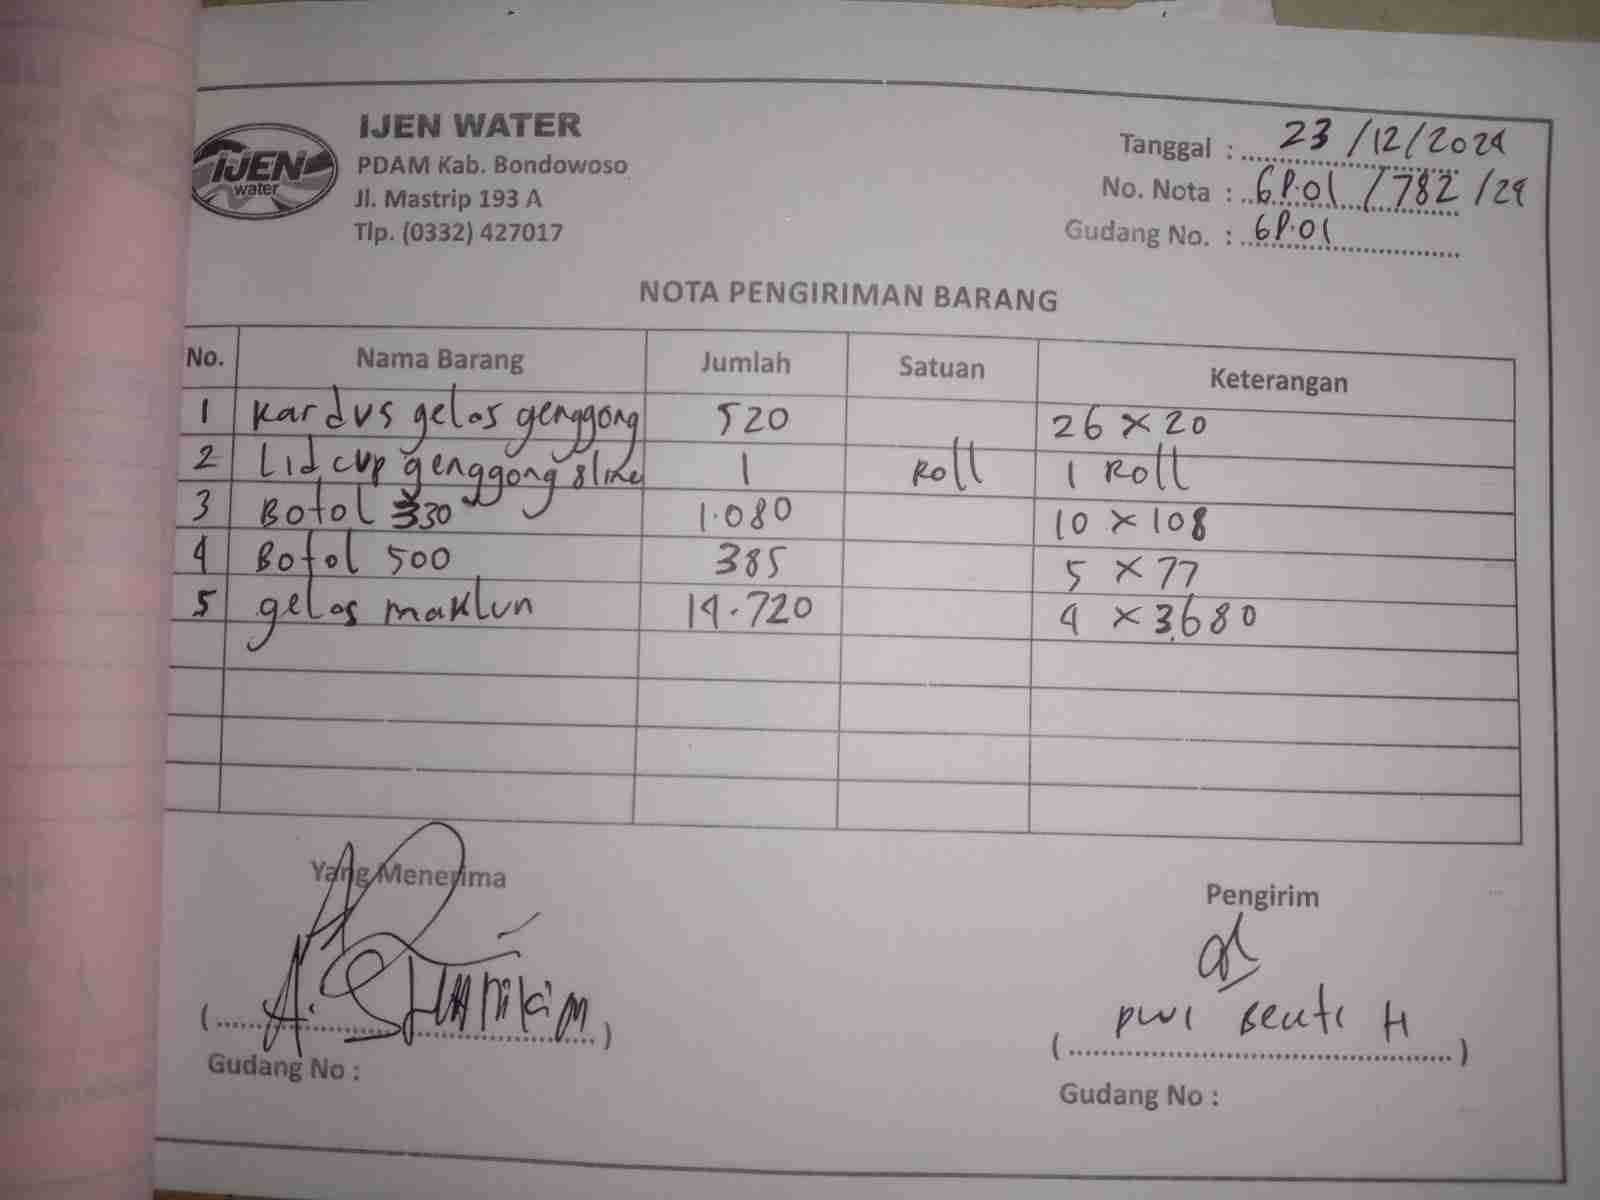 IJEN WATER
PDAM Kab. Bondowoso
Jl. Mastrip 193 A
Tlp. (0332) 427017
IJEN
water
Tanggal : 23/12/2024
No. Nota : GP.01/782/24
Gudang No. : GP.01
NOTA PENGIRIMAN BARANG
No. Nama Barang Jumlah Satuan Keterangan
1 Kardus gelas genggong 520 26 x 20
2 Lid cup genggong 8 line 1 Roll 1 Roll
3 Botol 330 1.080 10 x 108
4 Botol 500 385 5 x 77
5 gelas maklun 14.720 4 x 3.680
Yang Menerima
Pengirim
(A.)
( H)
Gudang No :
Gudang No :